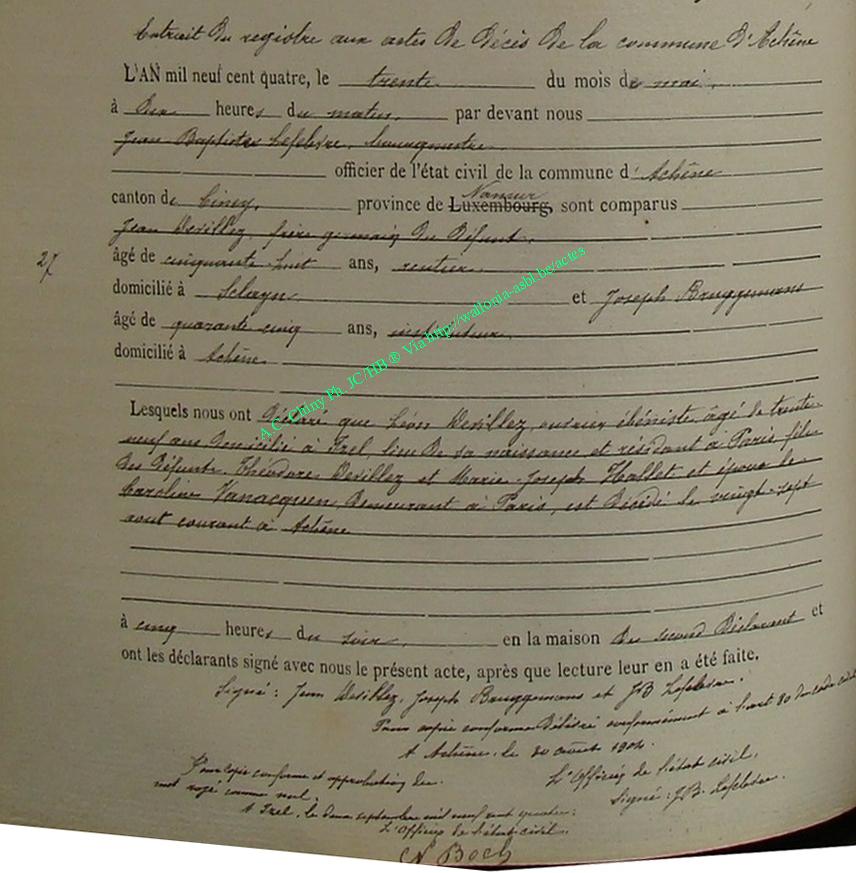 Extrait du registre aux actes de décès de la commune d'Achêne
L'AN mil neuf cent quatre, le trente du mois de mai
à dix heures du matin, par devant nous
Jean Baptiste Lefebvre, bourgmestre
officier de l'état civil de la commune d'Achêne
canton de Ciney, province de Luxembourg, Namur sont comparus
Jean Devillez, frère germain du défunt,
27
âgé de cinquante-huit ans, rentier
domicilié à Sclayn et Joseph Bruggemans
âgé de quarante cinq ans, instituteur
domicilié à Achêne
A.C. Chiny Ph. JC/HB ® Via http://wallonia-asbl.be/actes
Lesquels nous ont déclaré que Léon Devillez, ouvrier ébéniste, âgé de trente
neuf ans domicilié à Izel, lieu de sa naissance et résidant à Paris fils
des défunts Théodore Devillez et Marie-Joseph Hallet et époux de
Caroline Vanacquen, demeurant à Paris, est décédé le vingt-sept
aout courant à Achêne
à cinq heures du soir, en la maison du second déclarant et
ont les déclarants signé avec nous le présent acte, après que lecture leur en a été faite.
Signé : Jean Devillez, Joseph Bruggemans et JB Lefebvre.
Pour copie conforme délivré conformément à l'art 80 du code civil
A Achêne, le 30 août 1904.
L'Officier de l'état civil,
Signé : J.B. Lefebvre.
Pour copie conforme et approbation du
mot rayé comme nul,
A Izel, le deux septembre mil neuf cent quatre:
L'Officier de l'état civil,
N Boch